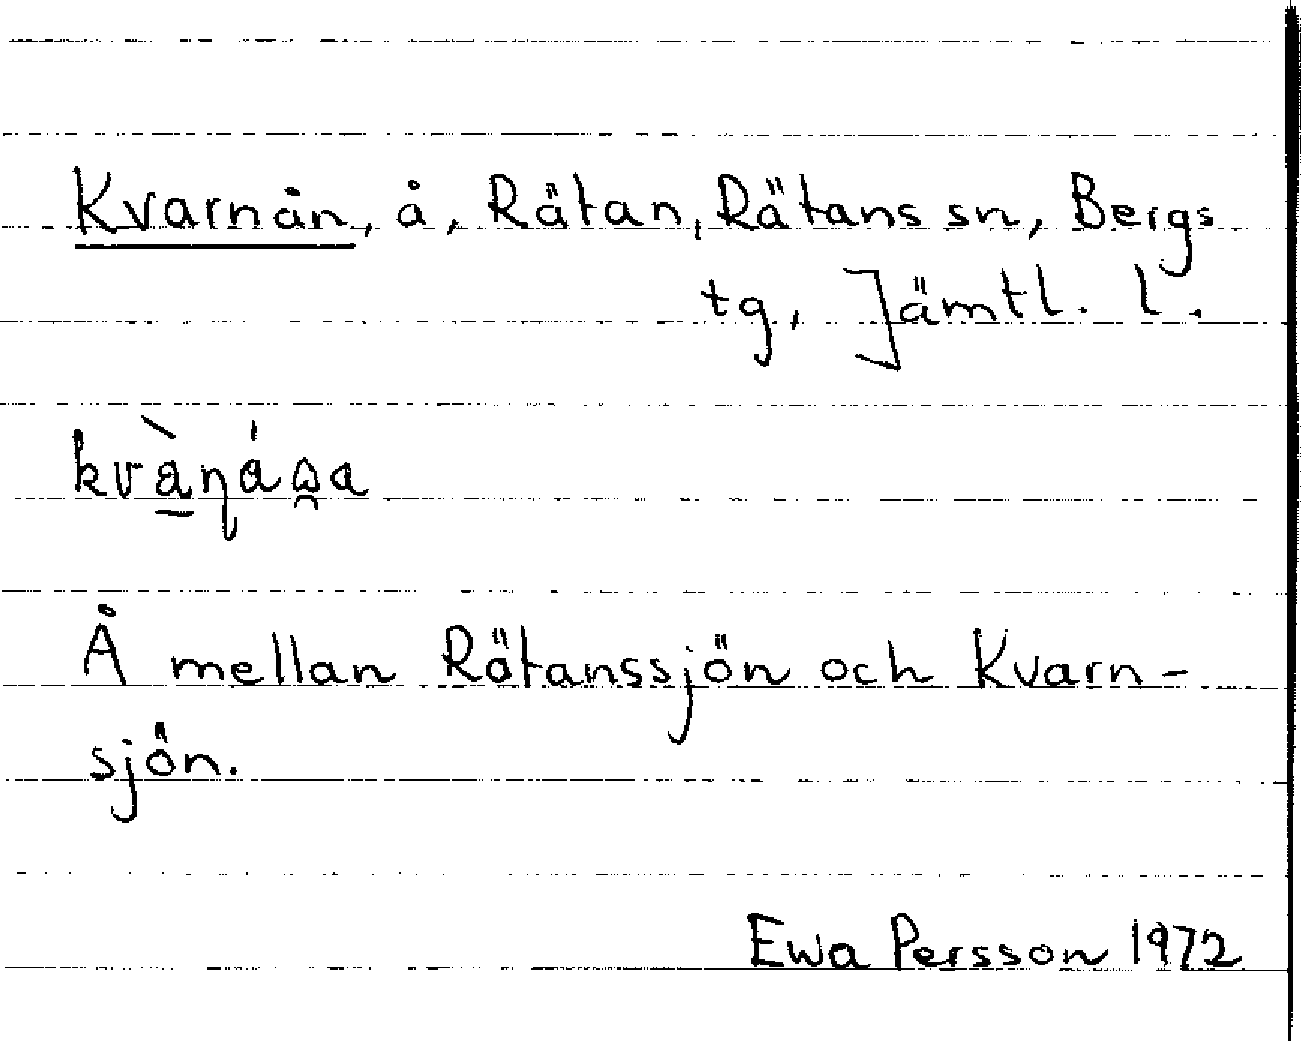 Kvarnån, å, Rätan, Rätans sn, Bergs
tg, Jämtl. l.
Å mellan Rätanssjön och Kvarn-
sjön.
Ewa Persson 1972